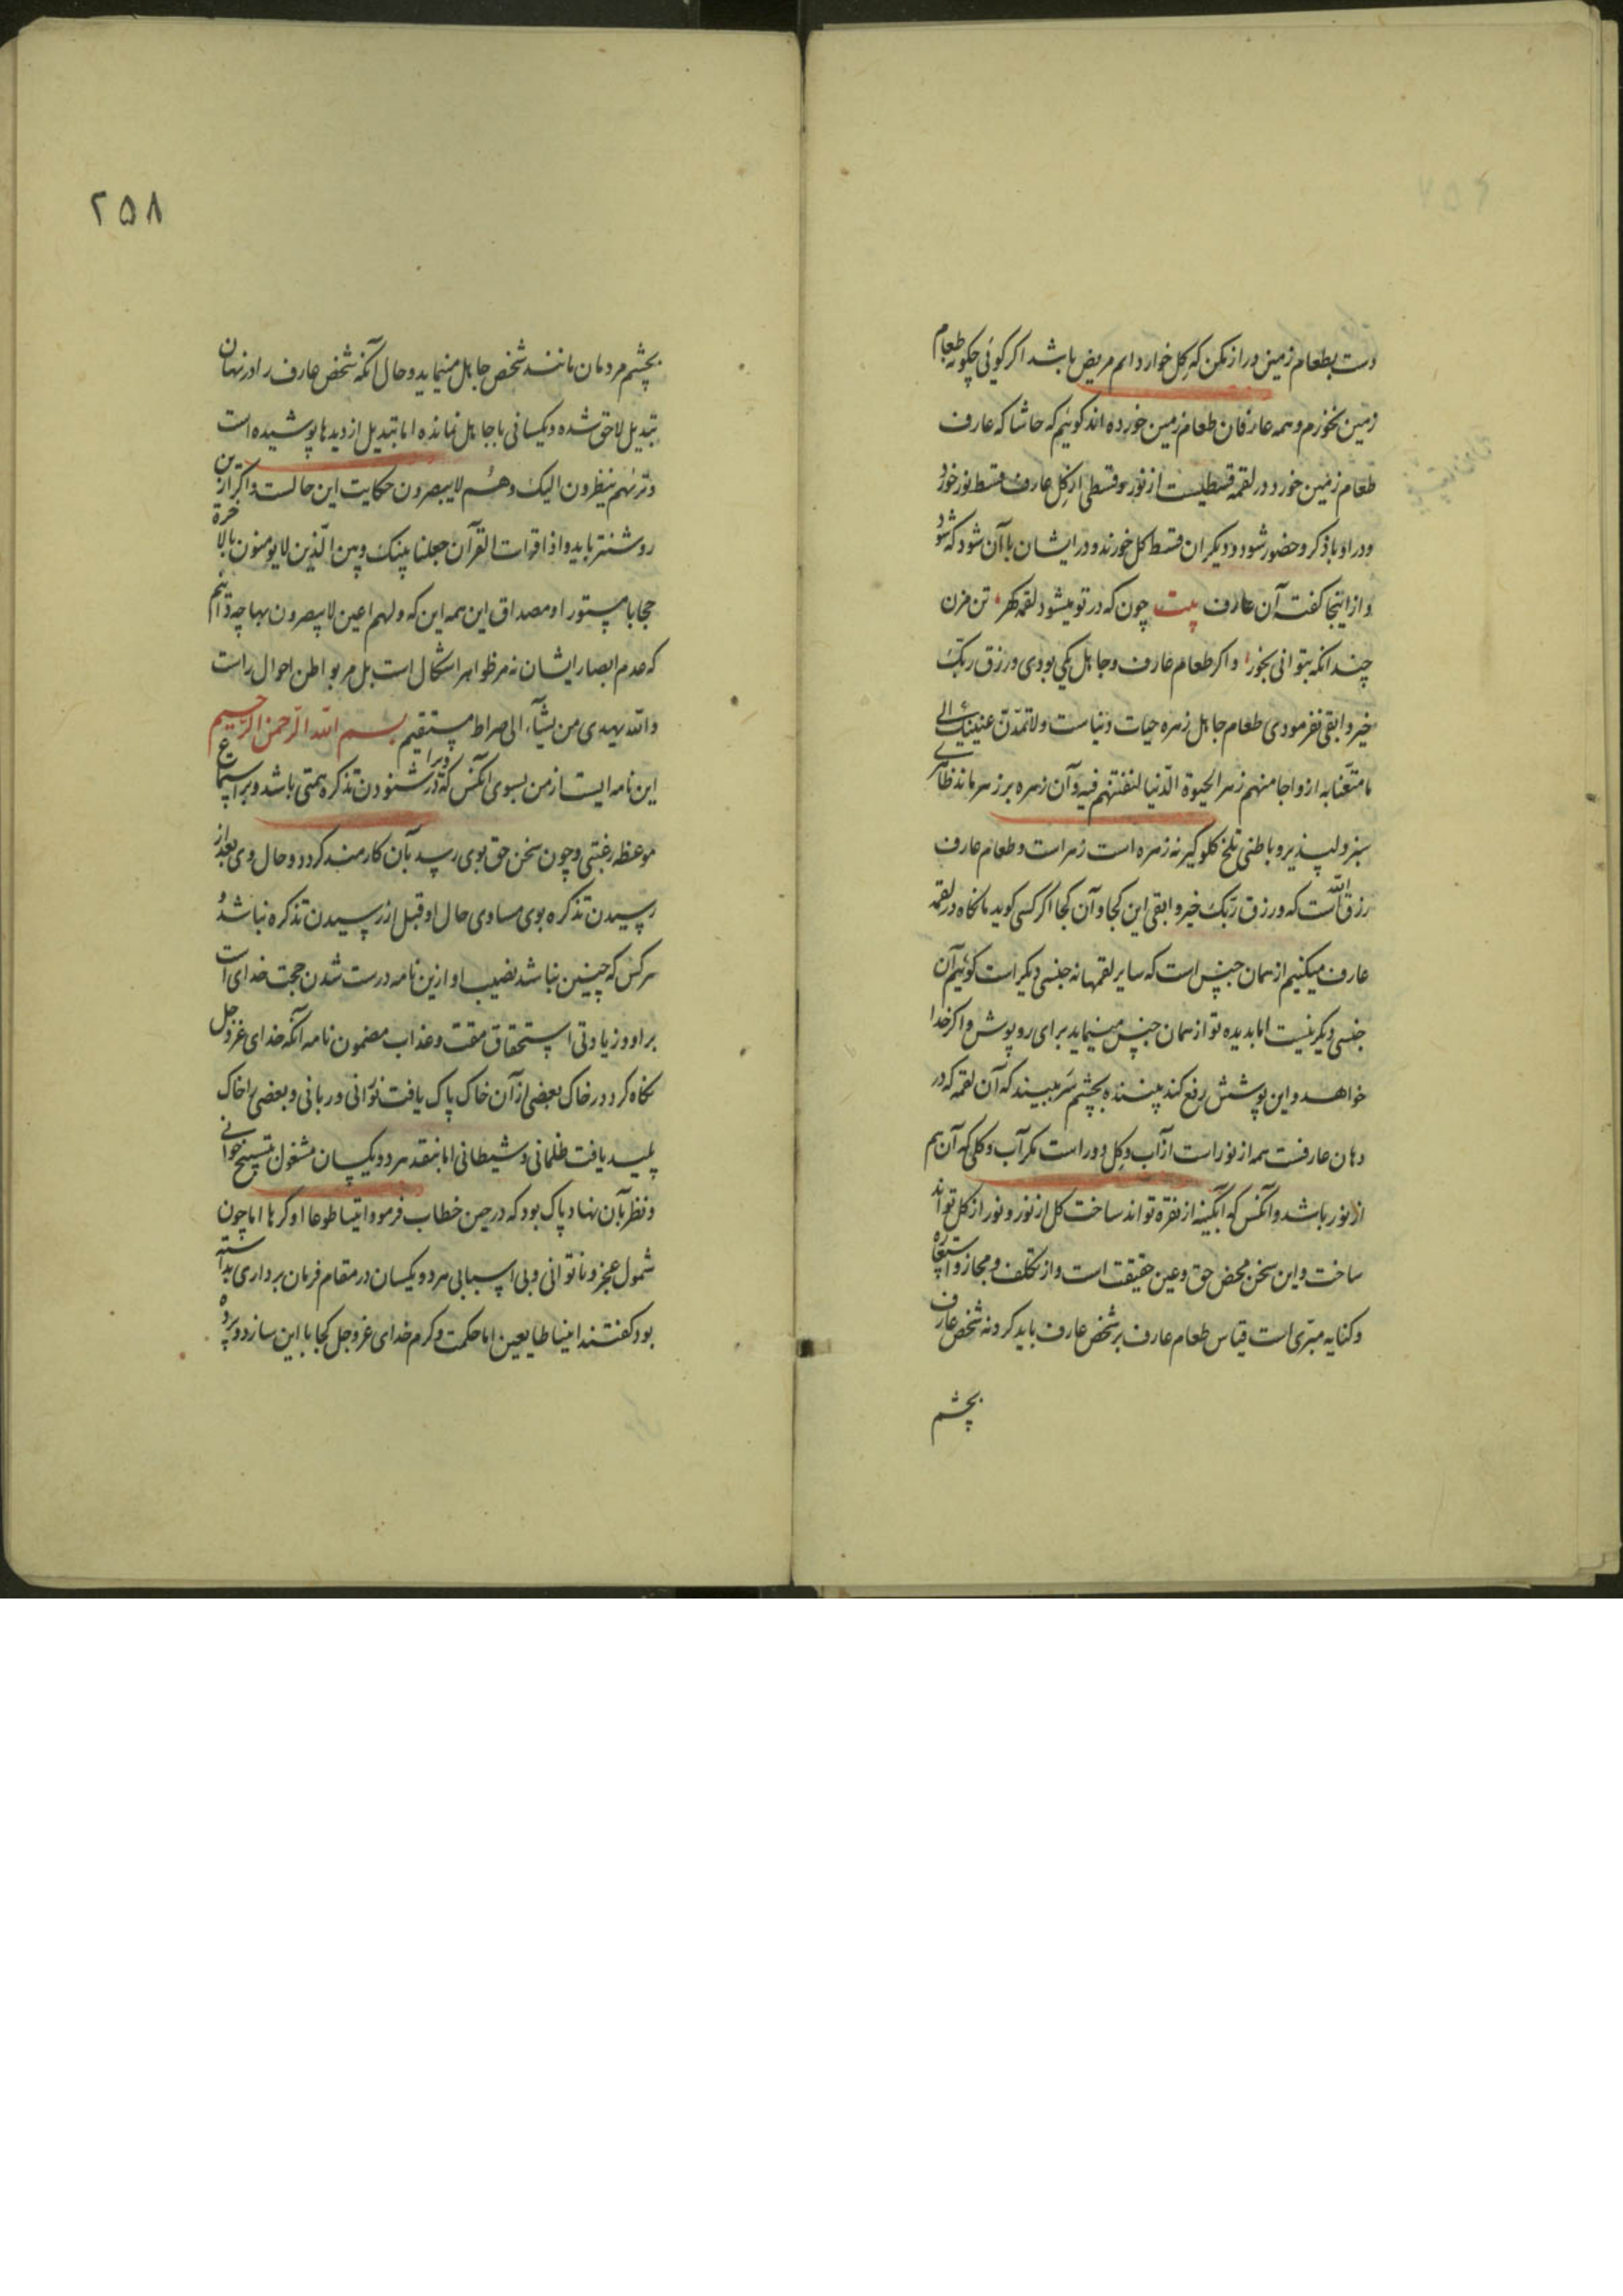 دست بطعام زمین دراز مکن که گل خوار دائم مریض باشد اکر کوئی چکونه طعام
زمین نخورم و همه عارفان طعام زمین خورده اند کوئیم که حاشا که عارف
طعام زمین خورد در لقمه قسطیست از نور و قسطی از کِل عارف قسط نور خورد
و در او با ذکر و حضور شود و دیکران قسط کل خورند و در ایشان با آن شود که شود
و از اینجا کفت آن عارف بیت چون که در تو میشود لقمه کهر تن مزن
چندانکه بتوانی بخور و اکر طعام عارف و جاهل یکی بودی و رزق ربّک
خیر و ابقی نفرمودی طعام جاهل زهره حیات دنیاست و لا تمدّنّ عینیک الی
ما متّعنا به ازواجا منهم زهر الحیوة الدّنیا لنفتنهم فیه و آن زهره بر زهر ماند ظاهری
سبز و لپذیر و باطنی تلخ کلوکیر نه زهره است زهر است و طعام عارف
رزق الله است که و رزق ربّک خیر و ابقی این کجا و آن کجا اکر کسی کوید ما نکاه در لقمه
عارف میکنیم از همان جنس است که سایر لقمها نه جنسی دیکر است کوئیم آن
جنسی دیکر نیست اما بدیده تو از همان جنس مینماید برای روپوش و اکر خدا
خواهد و این پوشش رفع کند بیننده بچشم سَر ببیند که آن لقمه که در
دهان عارفست همه از نور است از آب و کِل دور است مکر آب و کلی که آن هم
از نور باشد و آنکس که آبکینه از نقره تواند ساخت کل از نور و نور از کل تواند
ساخت و این سخن محض حق و عین حقیقت است و از تکلف و مجاز و استعاره
و کنایه مبرّی است قیاس طعام عارف بر شخص عارف باید کرد نه شخص عارف
بچشم
۲۵۸
بچشم مردمان مانند شخص جاهل مینماید و حال آنکه شخص عارف را در نهان
تبدیل لاحق شده و یکسانی با جاهل نمانده اما تبدیل از دیدها پوشیده است
و ترٰیهم ینظرون الیک و هُم لا یبصرون حکایت این حالست و اکر ازین
روشنتر باید و اذا قرات القرآن جعلنا بینک و بین الّذین لا یومنون بالاخرة
حجابا مستورا و مصداق این همه این که و لهم اعین لا یبصرون بها چه دانم
که عدم ابصار ایشان نه مر ظواهر اشکال است بل مر بواطن احوال راست
و الله یهدی من یشآء الی صراط مستقیم بسم الله الرّحمن الرّحیم
این نامه ایست از من بسوی آنکس که ویرا در شنودن تذکره همتی باشد و بر استماع
موعظه رغبتی و چون سخن حق بوی رسد بآن کارمند کردد و حال وی بعد از
رسیدن تذکره بوی مساوی حال او قبل از رسیدن تذکره نباشد و
هر کس که چنین نباشد نصیب او ازین نامه درست شدن حجت خدای است
بر او و زیادتی استحقاق مقت و عذاب مضمون نامه آنکه خدای عزّ و جل
نکاه کرد در خاک بعضی از آن خاک پاک یافت نورانی و ربانی و بعضی را خاک
پلید یافت ظلمانی و شیطانی اما بنقد هر دو یکسان مشغول تسبیح خوانی
و نظر بآن نهاد پاک بود که در حین خطاب فرمود ائتیا طوعا او کرها اما چون
شمول عجز و ناتوانی و بی اسبابی هر دو یکسان در مقام فرمان برداری بداشته
بود کفتند اتینا طایعین اما حکمت و کرم خدای عزّ و جل کجا با این سازد و پرده